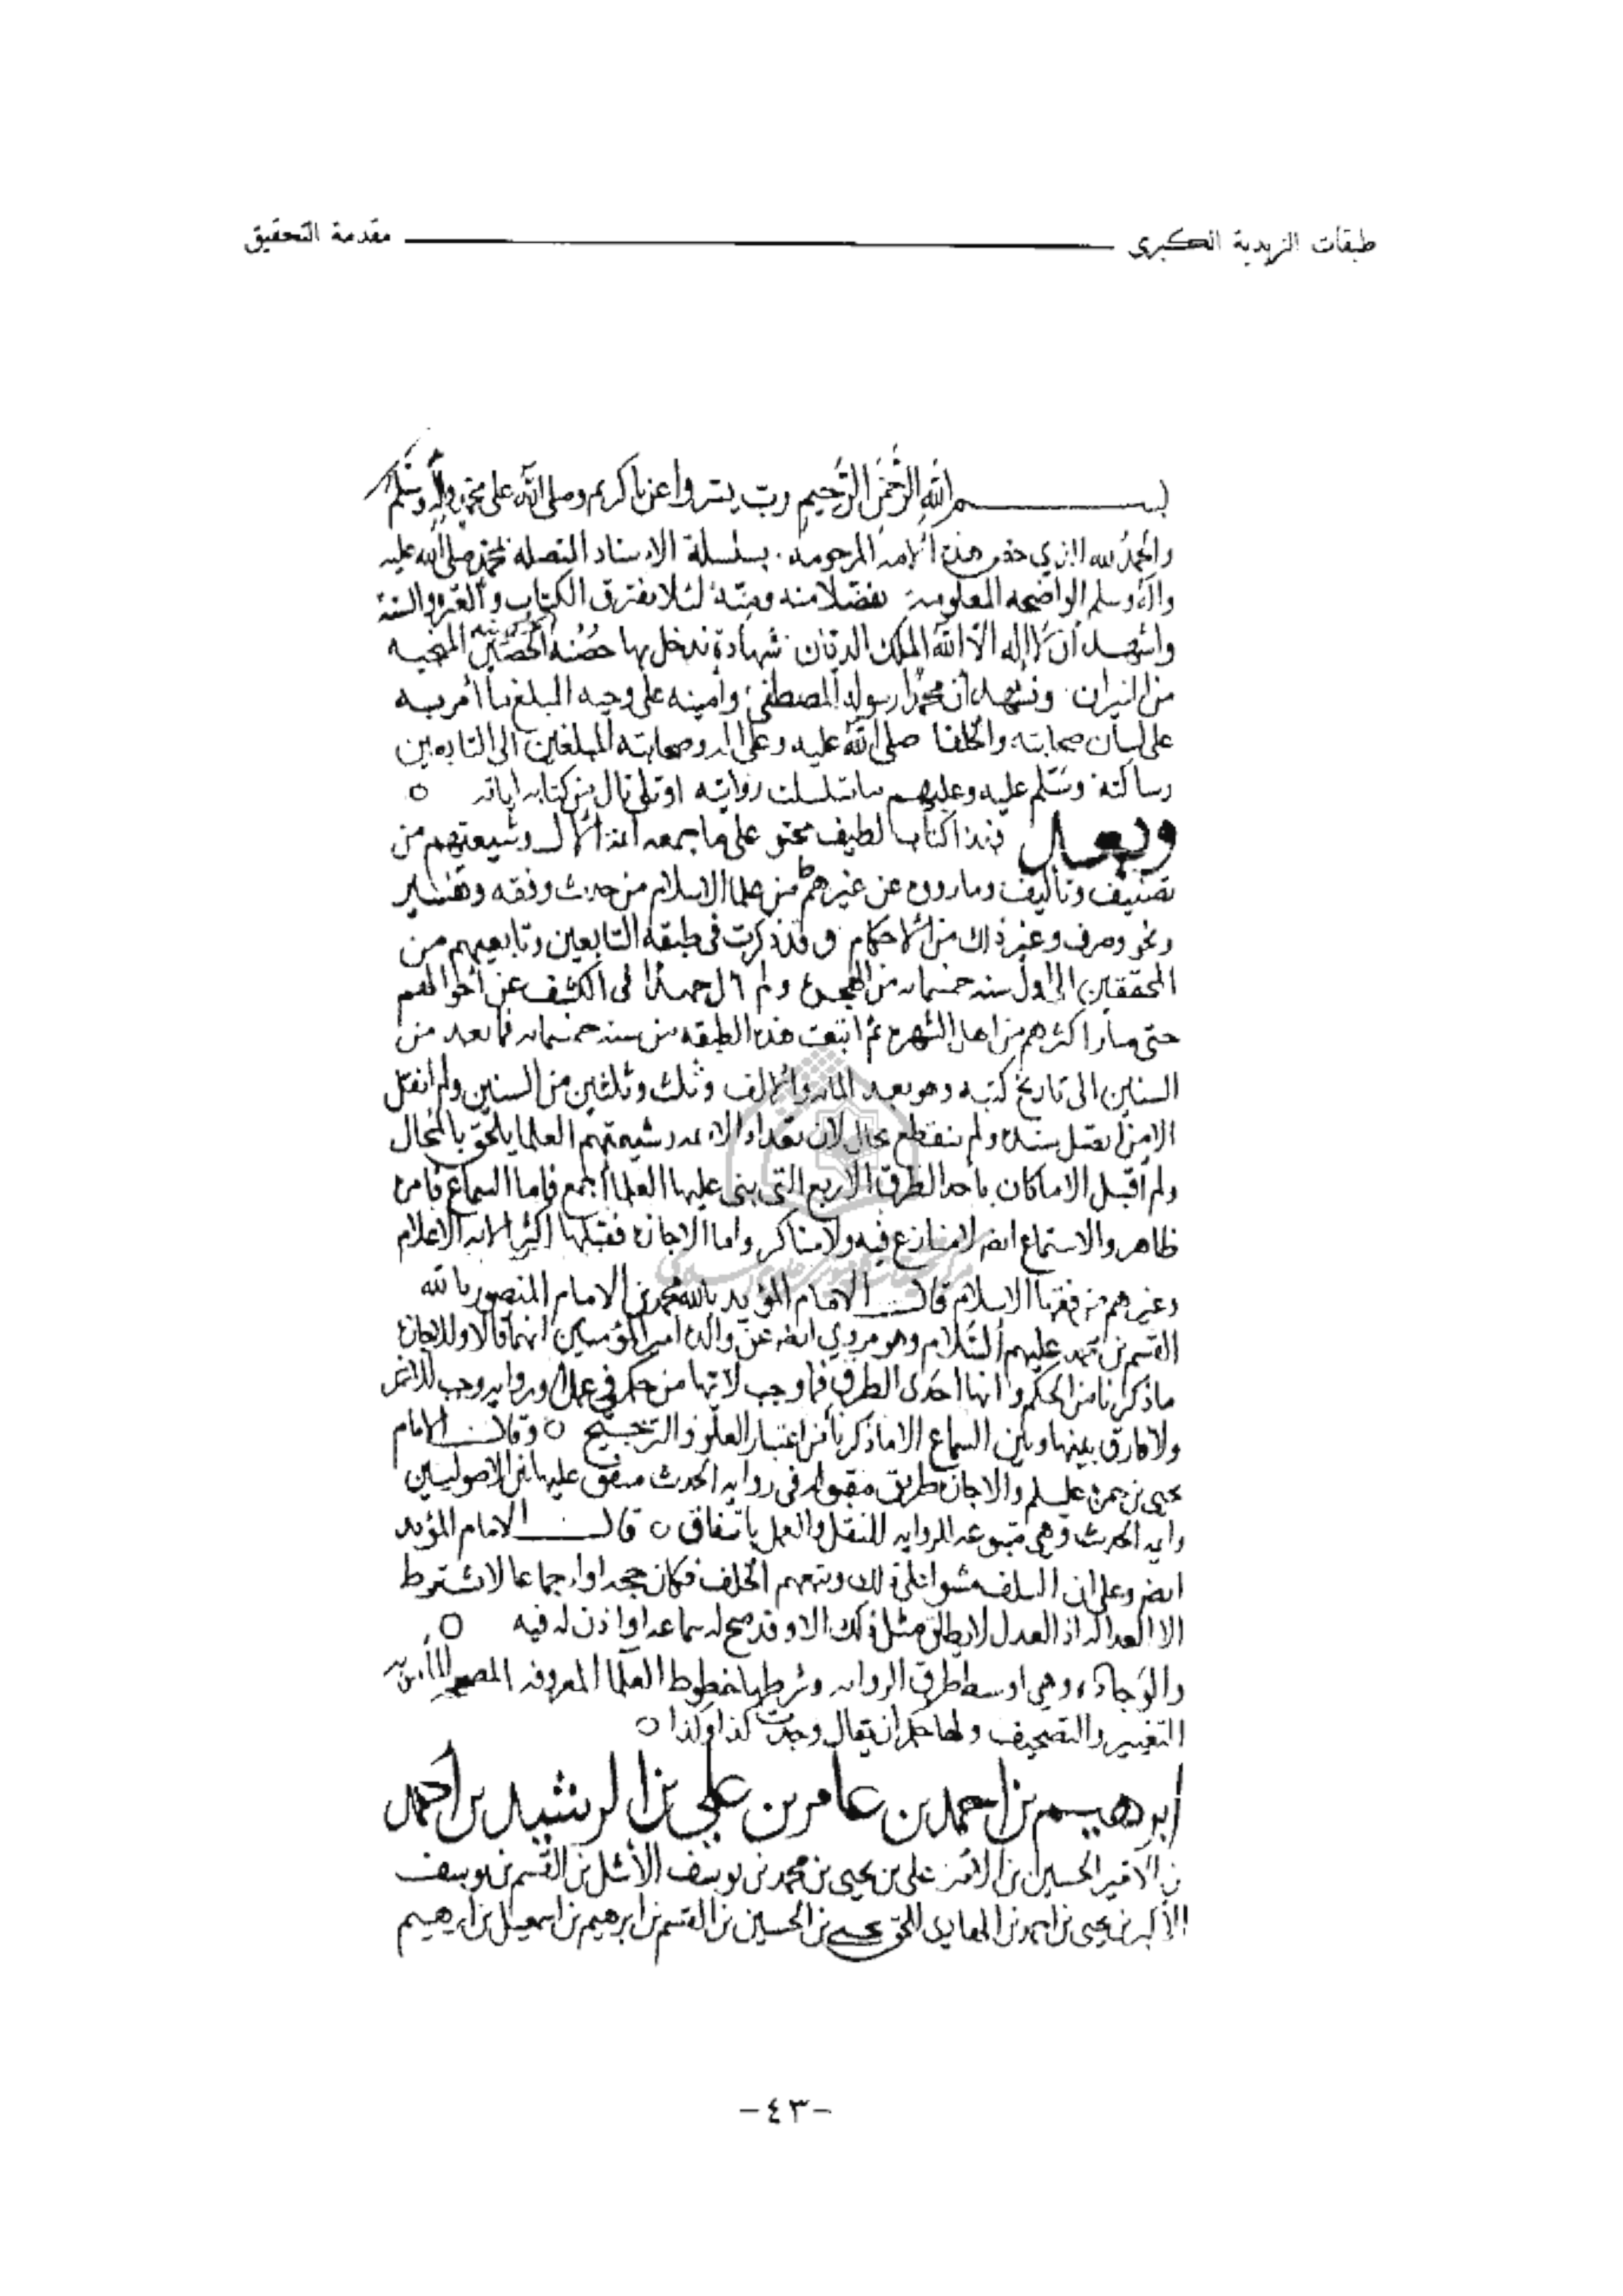 طبقات الزيدية الكبرى
مقدمة التحقيق
بسم الله الرحمن الرحيم رب يسر واعن يا كريم وصلى الله على محمد وآله وسلم
والحمد لله الذي خص هذه الامة المرحومة بسلسلة الاسناد المتصله بمحمد صلى الله عليه
وآله وسلم الواضحه المعلومة تفضلا منه ومنة لئلا يفترق الكتاب والعترة والسنة
واشهد أن لا إله الا الله الملك الديان شهادة ندخل بها حصنه الحصين المنجيه
من النيران ونشهد ان محمدا رسوله المصطفى وأمينه على وحيه المبلغ ما أمر به
على لسان صحابته والخلفا صلى الله عليه وعلى اله وصحابته المبلغين الى التابعين
رسالته وسلم عليه وعليهم ما تسلسلت روايه او تلى تال من كتابه ايا ته
وبعد فهذا كتاب لطيف محتو على ما جمعه ائمة الآل وشيعتهم من
تصنيف وتأليف وما رووه عن غيرهم من علما الاسلام من حديث وفقه وتفسير
ونحو وصرف وغير ذلك من الاحكام وقد ذكرت في طبقة التابعين وتابعيهم من
المحققين الى اول سنه خمسمائه من الهجره ولم آل جهدا في الكشف عن أحوالهم
حتى صار اكثرهم من اهل الشهره ثم اتبعت هذه الطبقه من سنه خمسمائه فما بعد من
السنين الى تاريخ كتبه وهو بعد المائه والالف وثلث وثلثين من السنين ولم انقل
الا من اتصل سنده ولم ينقطع بحال لان تعداد الائمه وشيعتهم العلما يلحق بالمحال
ولم أقبل الا ما كان بأحد الطرق الأربع التي بنى عليها العلما أجمع فاما السماع فأمره
ظاهر والاستماع ايضا لا منازع فيه ولا مناكر واما الاجازه فقبلها اكثر الائمه الاعلام
وغيرهم من فقها الاسلام قال الامام المؤيد بالله محمد بن الامام المنصور بالله
القسم بن محمد عليهم السلام وهو مروي ايضا عن والده امير المؤمنين انهما قالا وللاجازه
ما ذكرنا من الحكم وانها احدى الطرق فما وجب لاتها من حكم في عمل او روايه وجب للاخر
ولا فارق بينها وبين السماع الا ما ذكرنا من اعتبار العلو والترجيح ه وقال الامام
يحيى بن حمزه عليلم والاجازه طريق مقبوله في روايه الحديث متفق عليها بين الاصوليين
وايمه الحديث وهي متبوعه للروايه للنقل والعمل باتفاق ه قال الامام المؤيد
ايضا وعلى ان السلف مشوا على ذلك وتبعهم الخلف فكان حجه او اجماعا لا يشترط
الا العداله اذ العدل لا يطلق مثل ذلك الا وقد صح له سماعه او اذن له فيه ه
والوجاده وهي اوسط طرق الروايه وشرطها خطوط العلما المعروفه
التغيير والتصحيف ولها حكم ان يقال وجدت كذا وكذا ه
ابرهيم بن احمد بن عامر بن علي بن الرشيد بن أحمد
بن الأمير الحسين بن الأمير علي بن يحيى بن محمد بن يوسف الأشل بن القسم بن يوسف
الأكبر بن يحيى بن احمد بن الهادي الى الحق يحيى بن الحسين بن القسم بن ابرهيم بن اسمعيل بن ابرهيم
-٤٣-